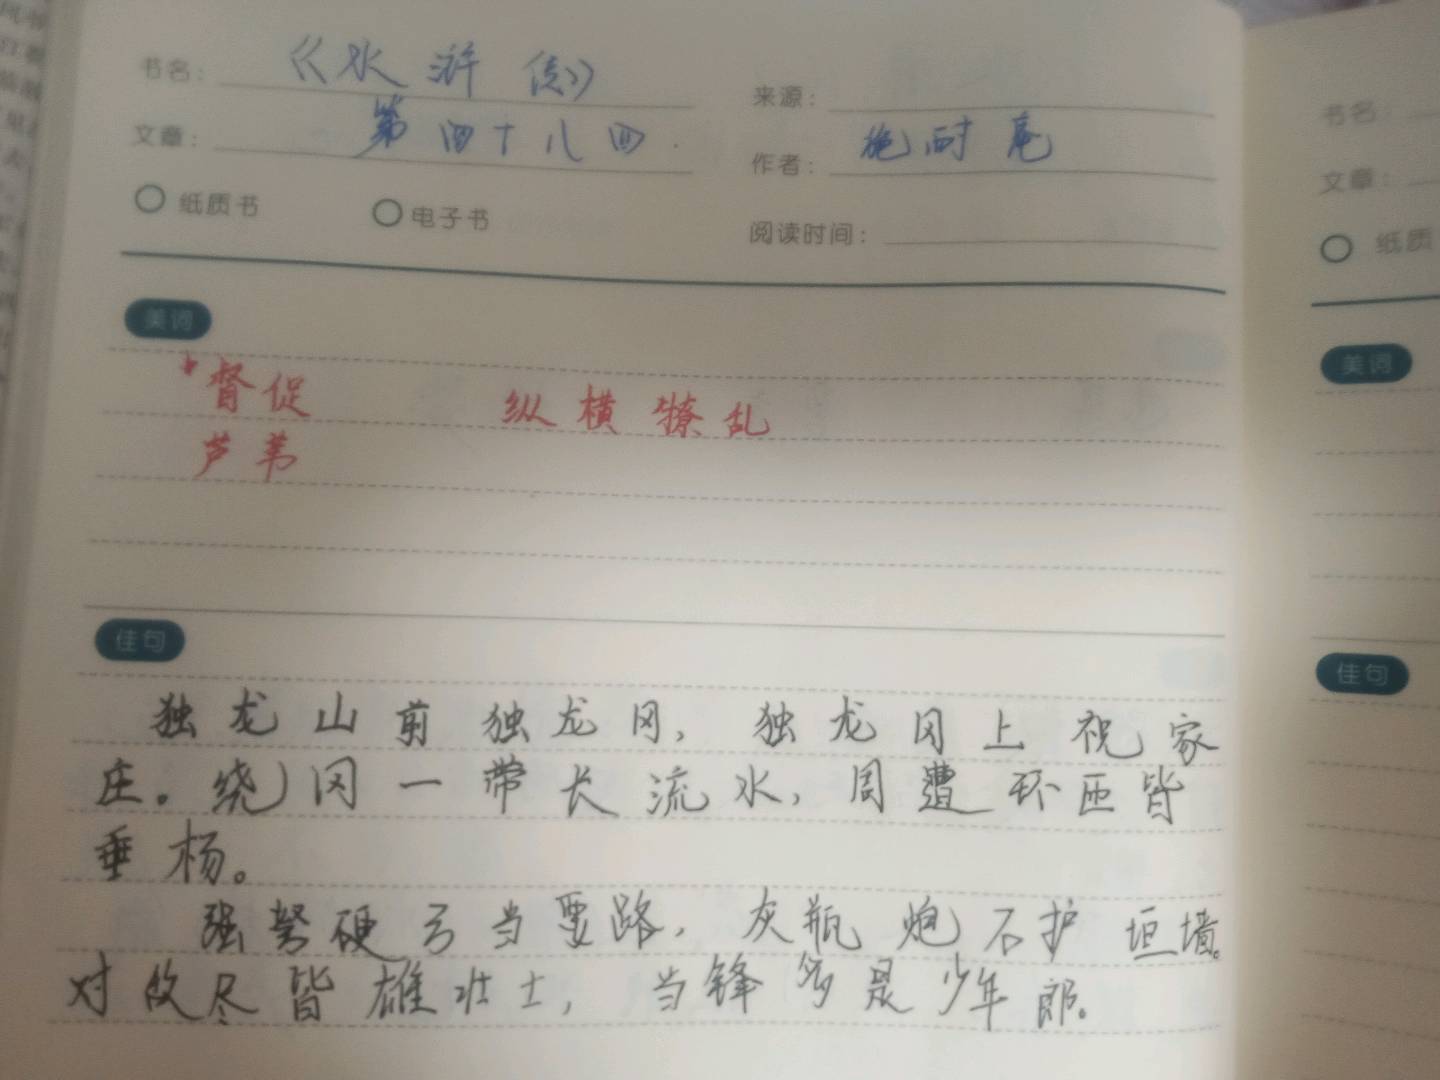 书名：《水浒传》
来源：
文章：第四十八回
作者：施耐庵
纸质书 电子书
阅读时间：
美词
督促 纵横獠乱
芦苇
佳句
独龙山前独龙冈，独龙冈上祝家
庄。绕冈一带长流水，周遭环匝皆
垂杨。
强弩硬弓当要路，灰瓶炮石护垣墙。
对敌尽皆雄壮士，当锋多是少年郎。
书名：
文章：
纸质
美词
佳句